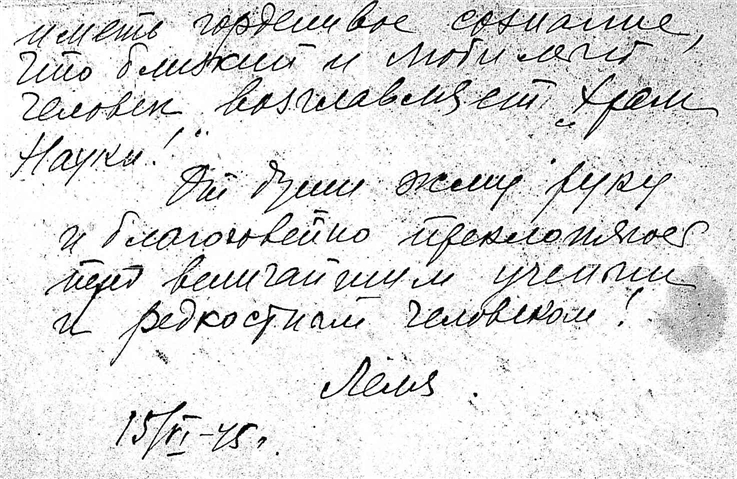 иметь горделивое сознание,
что близкий и любимый
человек возглавляет „Храм
Науки!"
От души жму руку
и благоговейно преклоняюсь
пред величайшим ученым
и редкостным человеком!
Леля.
15/VI-45г.